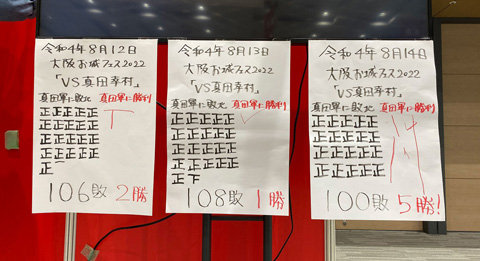 令和4年8月12日
大阪お城フェス2022
「VS真田幸村」
真田軍に敗北 真田軍に勝利
正正正正正 丅
正正正正正
正正正正正
正正正正正
正一
106敗 2勝
令和4年8月13日
大阪お城フェス2022
「VS真田幸村」
真田軍に敗北 真田軍に勝利
正正正正正
正正正正正
正正正正正
正正正正正
正下
108敗 1勝
令和4年8月14日
大阪お城フェス2022
「VS真田幸村」
真田軍に敗北 真田軍に勝利
正正正正正
正正正正正
正正正正正
正正正正正
100敗 5勝!